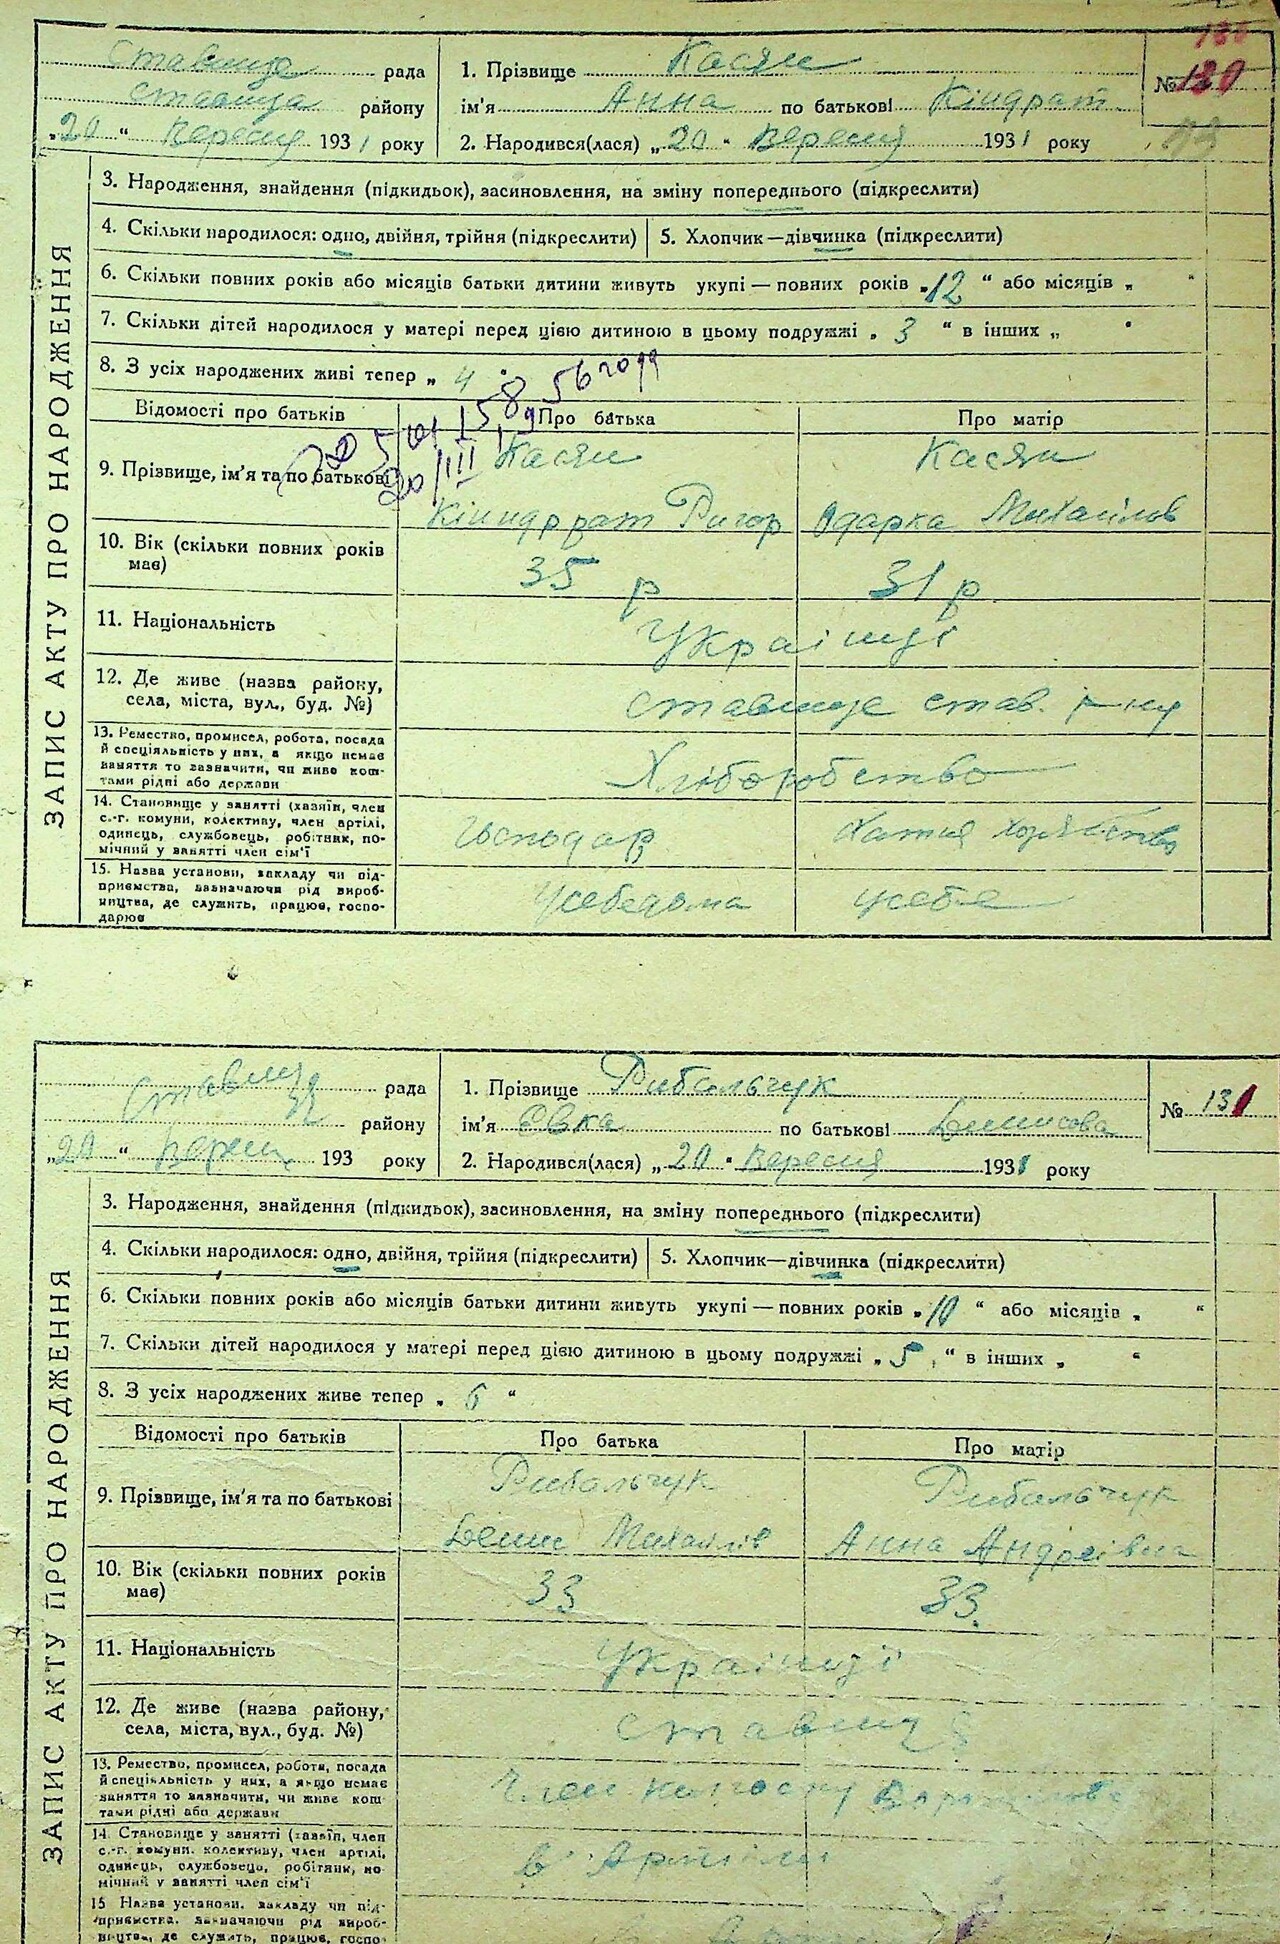 Ставища рада
Ставища району
„20“ Вересня 1931 року
1. Прізвище Касян
ім'я Анна по батькові Кіндрат.
2. Народився(лася) „20“ Вересня 1931 року
130
№ 130
ЗАПИС АКТУ ПРО НАРОДЖЕННЯ
3. Народження, знайдення (підкидьок), засиновлення, на зміну попереднього (підкреслити)
4. Скільки народилося: одно, двійня, трійня (підкреслити) 5. Хлопчик—дівчинка (підкреслити)
6. Скільки повних років або місяців батьки дитини живуть укупі — повних років „12“ або місяців „ “
7. Скільки дітей народилося у матері перед цією дитиною в цьому подружжі „3“ в інших „ “
8. З усіх народжених живі тепер „4“
Відомості про батьків Про батька Про матір
9. Прізвище, ім'я та по батькові Касян Касян
Кіндррат Ригор Одарка Михайлов
10. Вік (скільки повних років має) 35 р 31 р.
11. Національність Українці
12. Де живе (назва району, села, міста, вул., буд. №) Ставище став. р-ну
13. Ремество, промисел, робота, посада й спеціяльність у них, а якщо немає заняття то зазначити, чи живе коштами рідні або держави Хліборобство
14. Становище у занятті (хазяїн, член с.-г. комуни, колективу, член артілі, одинець, службовець, робітник, помічний у занятті член сім'ї господар
15. Назва установи, закладу чи підприємства, зазначаючи рід виробництва, де служить, працює, господарює усебедома усебе
Ставищ
рада
району
„20“ Вересн. 193 року
1. Прізвище Рибальчук
ім'я Євка по батькові Денисова
2. Народився(лася) „20“ Вересня 1931 року
№ 131
ЗАПИС АКТУ ПРО НАРОДЖЕННЯ
3. Народження, знайдення (підкидьок), засиновлення, на зміну попереднього (підкреслити)
4. Скільки народилося: одно, двійня, трійня (підкреслити) 5. Хлопчик—дівчинка (підкреслити)
6. Скільки повних років або місяців батьки дитини живуть укупі — повних років „10“ або місяців „ “
7. Скільки дітей народилося у матері перед цією дитиною в цьому подружжі „5“ в інших „ “
8. З усіх народжених живе тепер „6“
Відомості про батьків Про батька Про матір
9. Прізвище, ім'я та по батькові Рибальчук Рибальчук
Денис Михайлів Анна Андреівна
10. Вік (скільки повних років має) 33 33.
11. Національність Українці
12. Де живе (назва району, села, міста, вул., буд. №) Ставище
13. Ремество, промисел, робота, посада й спеціяльність у них, а якщо немає заняття то зазначити, чи живе коштами рідні або держави Член
14. Становище у занятті (хазяїн, член с.-г. комуни, колективу, член артілі, одинець, службовець, робітник, помічний у занятті член сім'ї в Артілі
15 Назва установи, закладу чи підприємства, зазначаючи рід виробництва, де служить, працює, госпо-